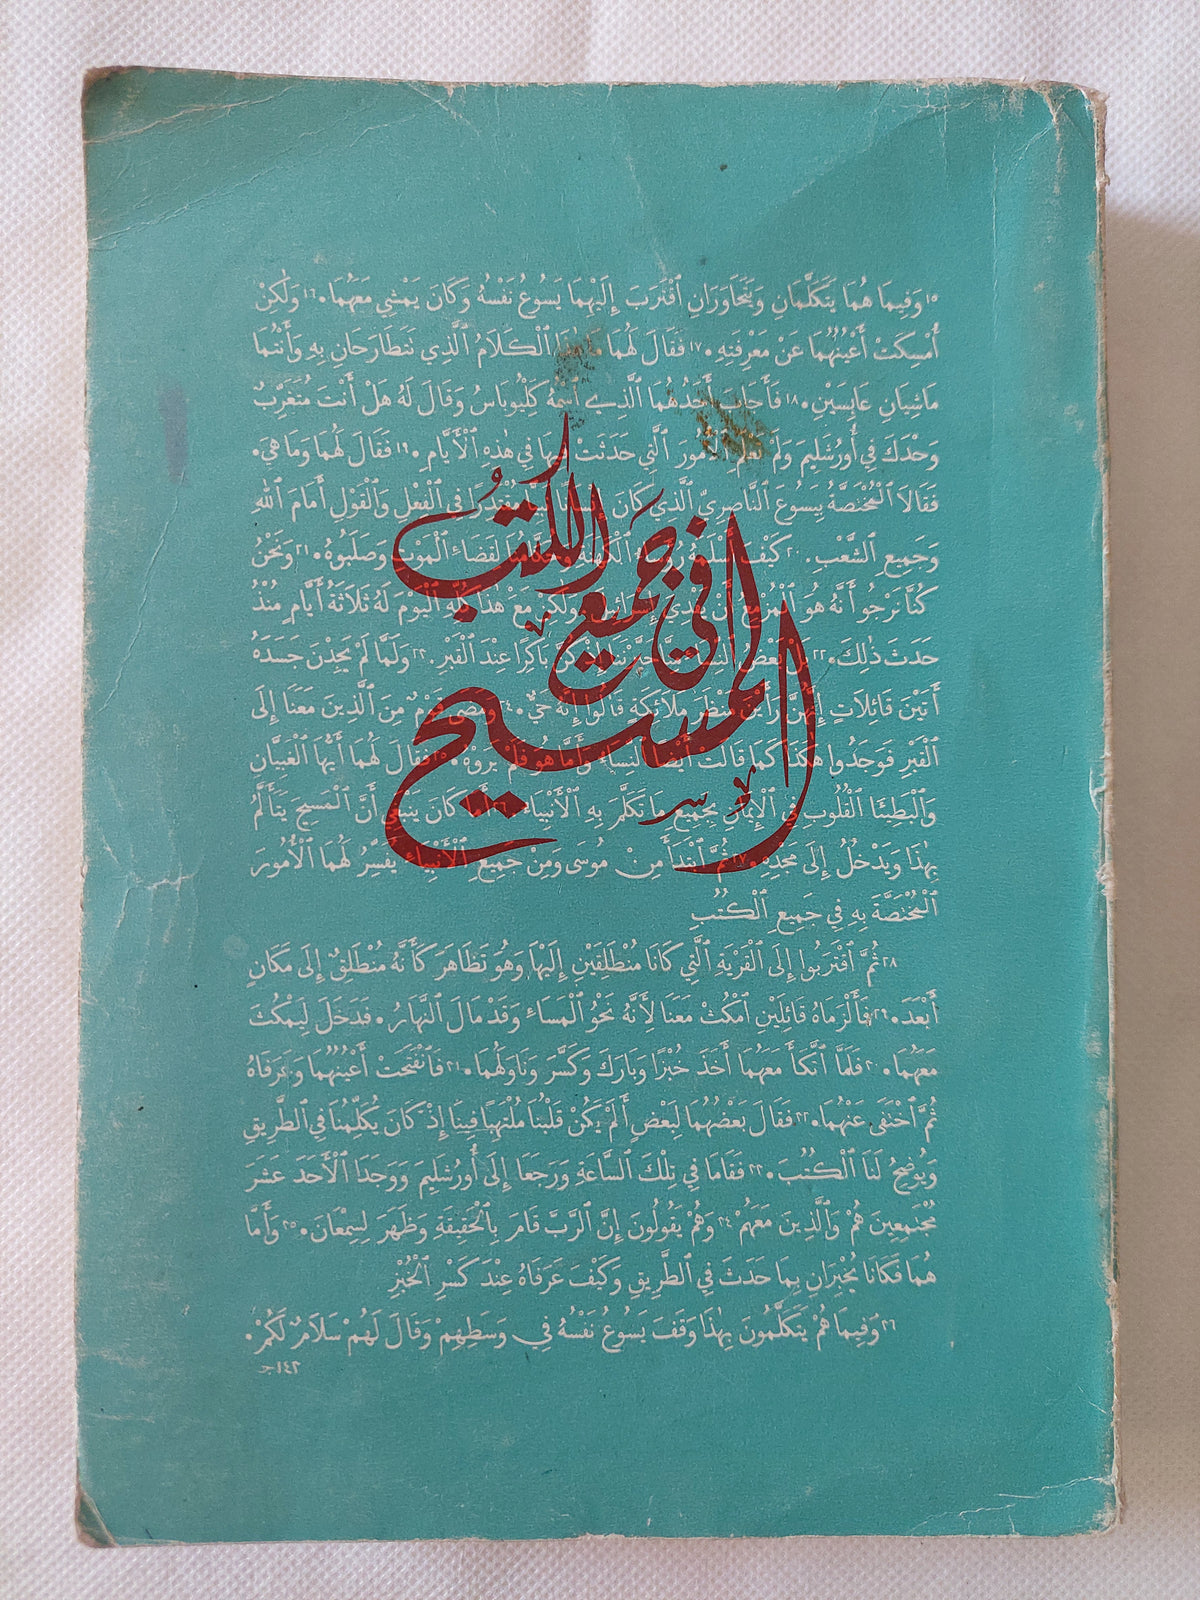 ١٥ وَفِيمَا هُمَا يَتَكَلَّمَانِ وَيَتَحَاوَرَانِ ٱقْتَرَبَ إِلَيْهِمَا يَسُوعُ نَفْسُهُ وَكَانَ يَمْشِي مَعَهُمَا٠ ١٦ وَلٰكِنْ
أُمْسِكَتْ أَعْيُنُهُمَا عَنْ مَعْرِفَتِهِ٠ ١٧ فَقَالَ لَهُمَا مَا هٰذَا ٱلْكَلَامُ ٱلَّذِي تَتَطَارَحَانِ بِهِ وَأَنْتُمَا
مَاشِيَانِ عَابِسَيْنِ٠ ١٨ فَأَجَابَ أَحَدُهُمَا ٱلَّذِي ٱسْمُهُ كِلْيُوبَاسُ وَقَالَ لَهُ هَلْ أَنْتَ مُتَغَرِّبٌ
وَحْدَكَ فِي أُورُشَلِيمَ وَلَمْ تَعْلَمِ ٱلْأُمُورَ ٱلَّتِي حَدَثَتْ فِيهَا فِي هٰذِهِ ٱلْأَيَّامِ٠ ١٩ فَقَالَ لَهُمَا وَمَا هِيَ٠
فَقَالَا ٱلْمُخْتَصَّةُ بِيَسُوعَ ٱلنَّاصِرِيِّ ٱلَّذِي كَانَ إِنْسَانًا نَبِيًّا مُقْتَدِرًا فِي ٱلْفِعْلِ وَٱلْقَوْلِ أَمَامَ ٱللهِ
وَجَمِيعِ ٱلشَّعْبِ٠ ٢٠ كَيْفَ أَسْلَمَهُ رُؤَسَاءُ ٱلْكَهَنَةِ وَحُكَّامُنَا لِقَضَاءِ ٱلْمَوْتِ وَصَلَبُوهُ٠ ٢١ وَنَحْنُ
كُنَّا نَرْجُو أَنَّهُ هُوَ ٱلْمُزْمِعُ أَنْ يَفْدِيَ إِسْرَائِيلَ٠ وَلٰكِنْ مَعْ هٰذَا كُلِّهِ ٱلْيَوْمَ لَهُ ثَلَاثَةُ أَيَّامٍ مُنْذُ
حَدَثَ ذٰلِكَ٠ ٢٢ بَلْ بَعْضُ ٱلنِّسَاءِ مِنَّا حَيَّرْنَنَا إِذْ كُنَّ بَاكِرًا عِنْدَ ٱلْقَبْرِ٠ ٢٣ وَلَمَّا لَمْ يَجِدْنَ جَسَدَهُ
أَتَيْنَ قَائِلَاتٍ إِنَّهُنَّ رَأَيْنَ مَنْظَرَ مَلَائِكَةٍ قَالُوا إِنَّهُ حَيٌّ٠ ٢٤ وَمَضَى قَوْمٌ مِنَ ٱلَّذِينَ مَعَنَا إِلَى
ٱلْقَبْرِ فَوَجَدُوا هٰكَذَا كَمَا قَالَتْ أَيْضًا ٱلنِّسَاءُ وَأَمَّا هُوَ فَلَمْ يَرَوْهُ٠ ٢٥ فَقَالَ لَهُمَا أَيُّهَا ٱلْغَبِيَّانِ
وَٱلْبَطِيئَا ٱلْقُلُوبِ فِي ٱلْإِيمَانِ بِجَمِيعِ مَا تَكَلَّمَ بِهِ ٱلْأَنْبِيَاءُ ٢٦ أَمَا كَانَ يَنْبَغِي أَنَّ ٱلْمَسِيحَ يَتَأَلَّمُ
بِهٰذَا وَيَدْخُلُ إِلَى مَجْدِهِ٠ ٢٧ ثُمَّ ٱبْتَدَأَ مِنْ مُوسَى وَمِنْ جَمِيعِ ٱلْأَنْبِيَاءِ يُفَسِّرُ لَهُمَا ٱلْأُمُورَ
ٱلْمُخْتَصَّةَ بِهِ فِي جَمِيعِ ٱلْكُتُبِ
المسيح في جميع الكتب
٢٨ ثُمَّ ٱقْتَرَبُوا إِلَى ٱلْقَرْيَةِ ٱلَّتِي كَانَا مُنْطَلِقَيْنِ إِلَيْهَا وَهُوَ تَظَاهَرَ كَأَنَّهُ مُنْطَلِقٌ إِلَى مَكَانٍ
أَبْعَدَ٠ ٢٩ فَأَلْزَمَاهُ قَائِلَيْنِ ٱمْكُثْ مَعَنَا لِأَنَّهُ نَحْوُ ٱلْمَسَاءِ وَقَدْ مَالَ ٱلنَّهَارُ٠ فَدَخَلَ لِيَمْكُثَ
مَعَهُمَا٠ ٣٠ فَلَمَّا ٱتَّكَأَ مَعَهُمَا أَخَذَ خُبْزًا وَبَارَكَ وَكَسَّرَ وَنَاوَلَهُمَا٠ ٣١ فَٱنْفَتَحَتْ أَعْيُنُهُمَا وَعَرَفَاهُ
ثُمَّ ٱخْتَفَى عَنْهُمَا٠ ٣٢ فَقَالَ بَعْضُهُمَا لِبَعْضٍ أَلَمْ يَكُنْ قَلْبُنَا مُلْتَهِبًا فِينَا إِذْ كَانَ يُكَلِّمُنَا فِي ٱلطَّرِيقِ
وَيُوضِحُ لَنَا ٱلْكُتُبَ٠ ٣٣ فَقَامَا فِي تِلْكَ ٱلسَّاعَةِ وَرَجَعَا إِلَى أُورُشَلِيمَ وَوَجَدَا ٱلْأَحَدَ عَشَرَ
مُجْتَمِعِينَ هُمْ وَٱلَّذِينَ مَعَهُمْ ٣٤ وَهُمْ يَقُولُونَ إِنَّ ٱلرَّبَّ قَامَ بِٱلْحَقِيقَةِ وَظَهَرَ لِسِمْعَانَ٠ ٣٥ وَأَمَّا
هُمَا فَكَانَا يُخْبِرَانِ بِمَا حَدَثَ فِي ٱلطَّرِيقِ وَكَيْفَ عَرَفَاهُ عِنْدَ كَسْرِ ٱلْخُبْزِ
٣٦ وَفِيمَا هُمْ يَتَكَلَّمُونَ بِهٰذَا وَقَفَ يَسُوعُ نَفْسُهُ فِي وَسَطِهِمْ وَقَالَ لَهُمْ سَلَامٌ لَكُمْ٠